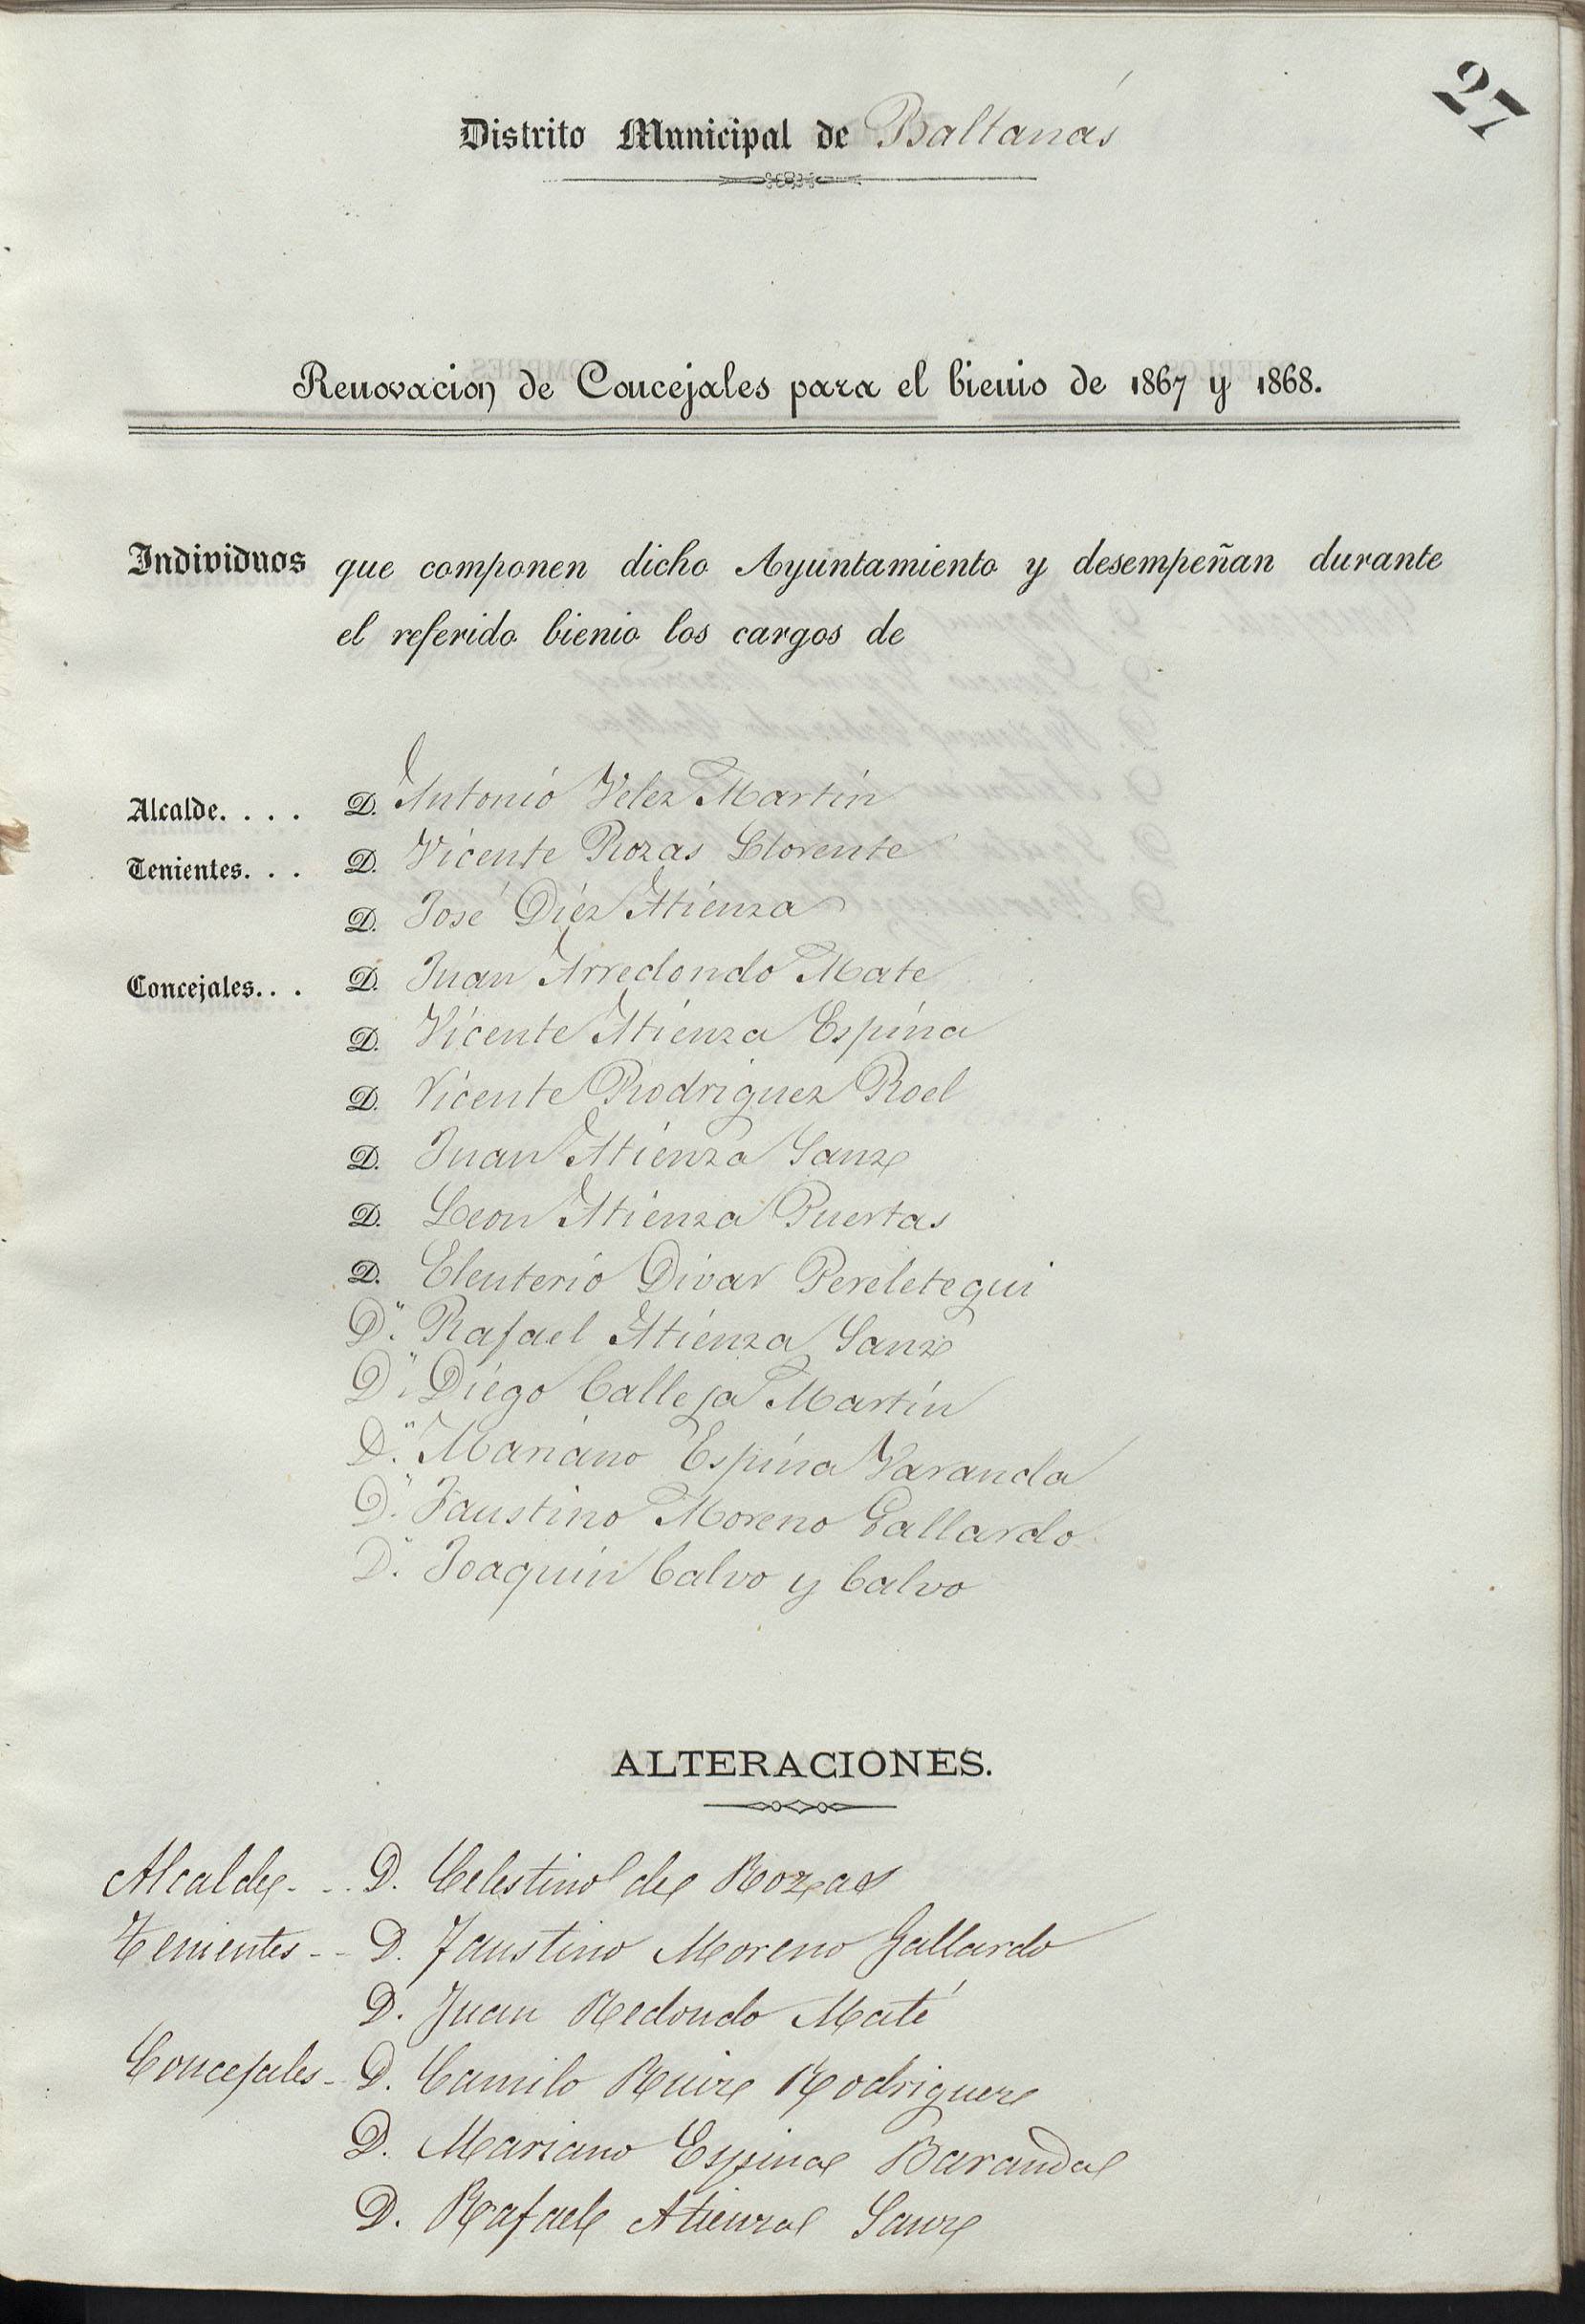 27
Distrito Municipal de Baltanás
Renovacion de Concejales para el bienio de 1867 y 1868.
Individuos que componen dicho Ayuntamiento y desempeñan durante
el referido bienio los cargos de
Alcalde. . . . D. Antonio Velez Martín
Tenientes. . . D. Vicente Rozas Llorente
D. José Diéz Atienza
Concejales. . . D. Juan Arredondo Mate
D. Vicente Atienza Espina
D. Vicente Rodriguez Roel
D. Juan Atienza Sanz
D. Leon Atienza Puertas
D. Eleuterio Divar Pereletegui
Dn. Rafael Atienza Sanz
Dn. Diego Calleja Martín
Dn. Mariano Espina Varanda
Dn. Faustino Moreno Gallardo
Dn. Joaquin Calvo y Calvo
ALTERACIONES.
Alcalde - .. D. Celestino de Rozas
Tenientes - - D. Faustino Moreno Gallardo
D. Juan Redondo Maté
Concejales - D. Camilo Ruiz Rodriguez
D. Mariano Espina Baranda
D. Rafael Atienza Sanz